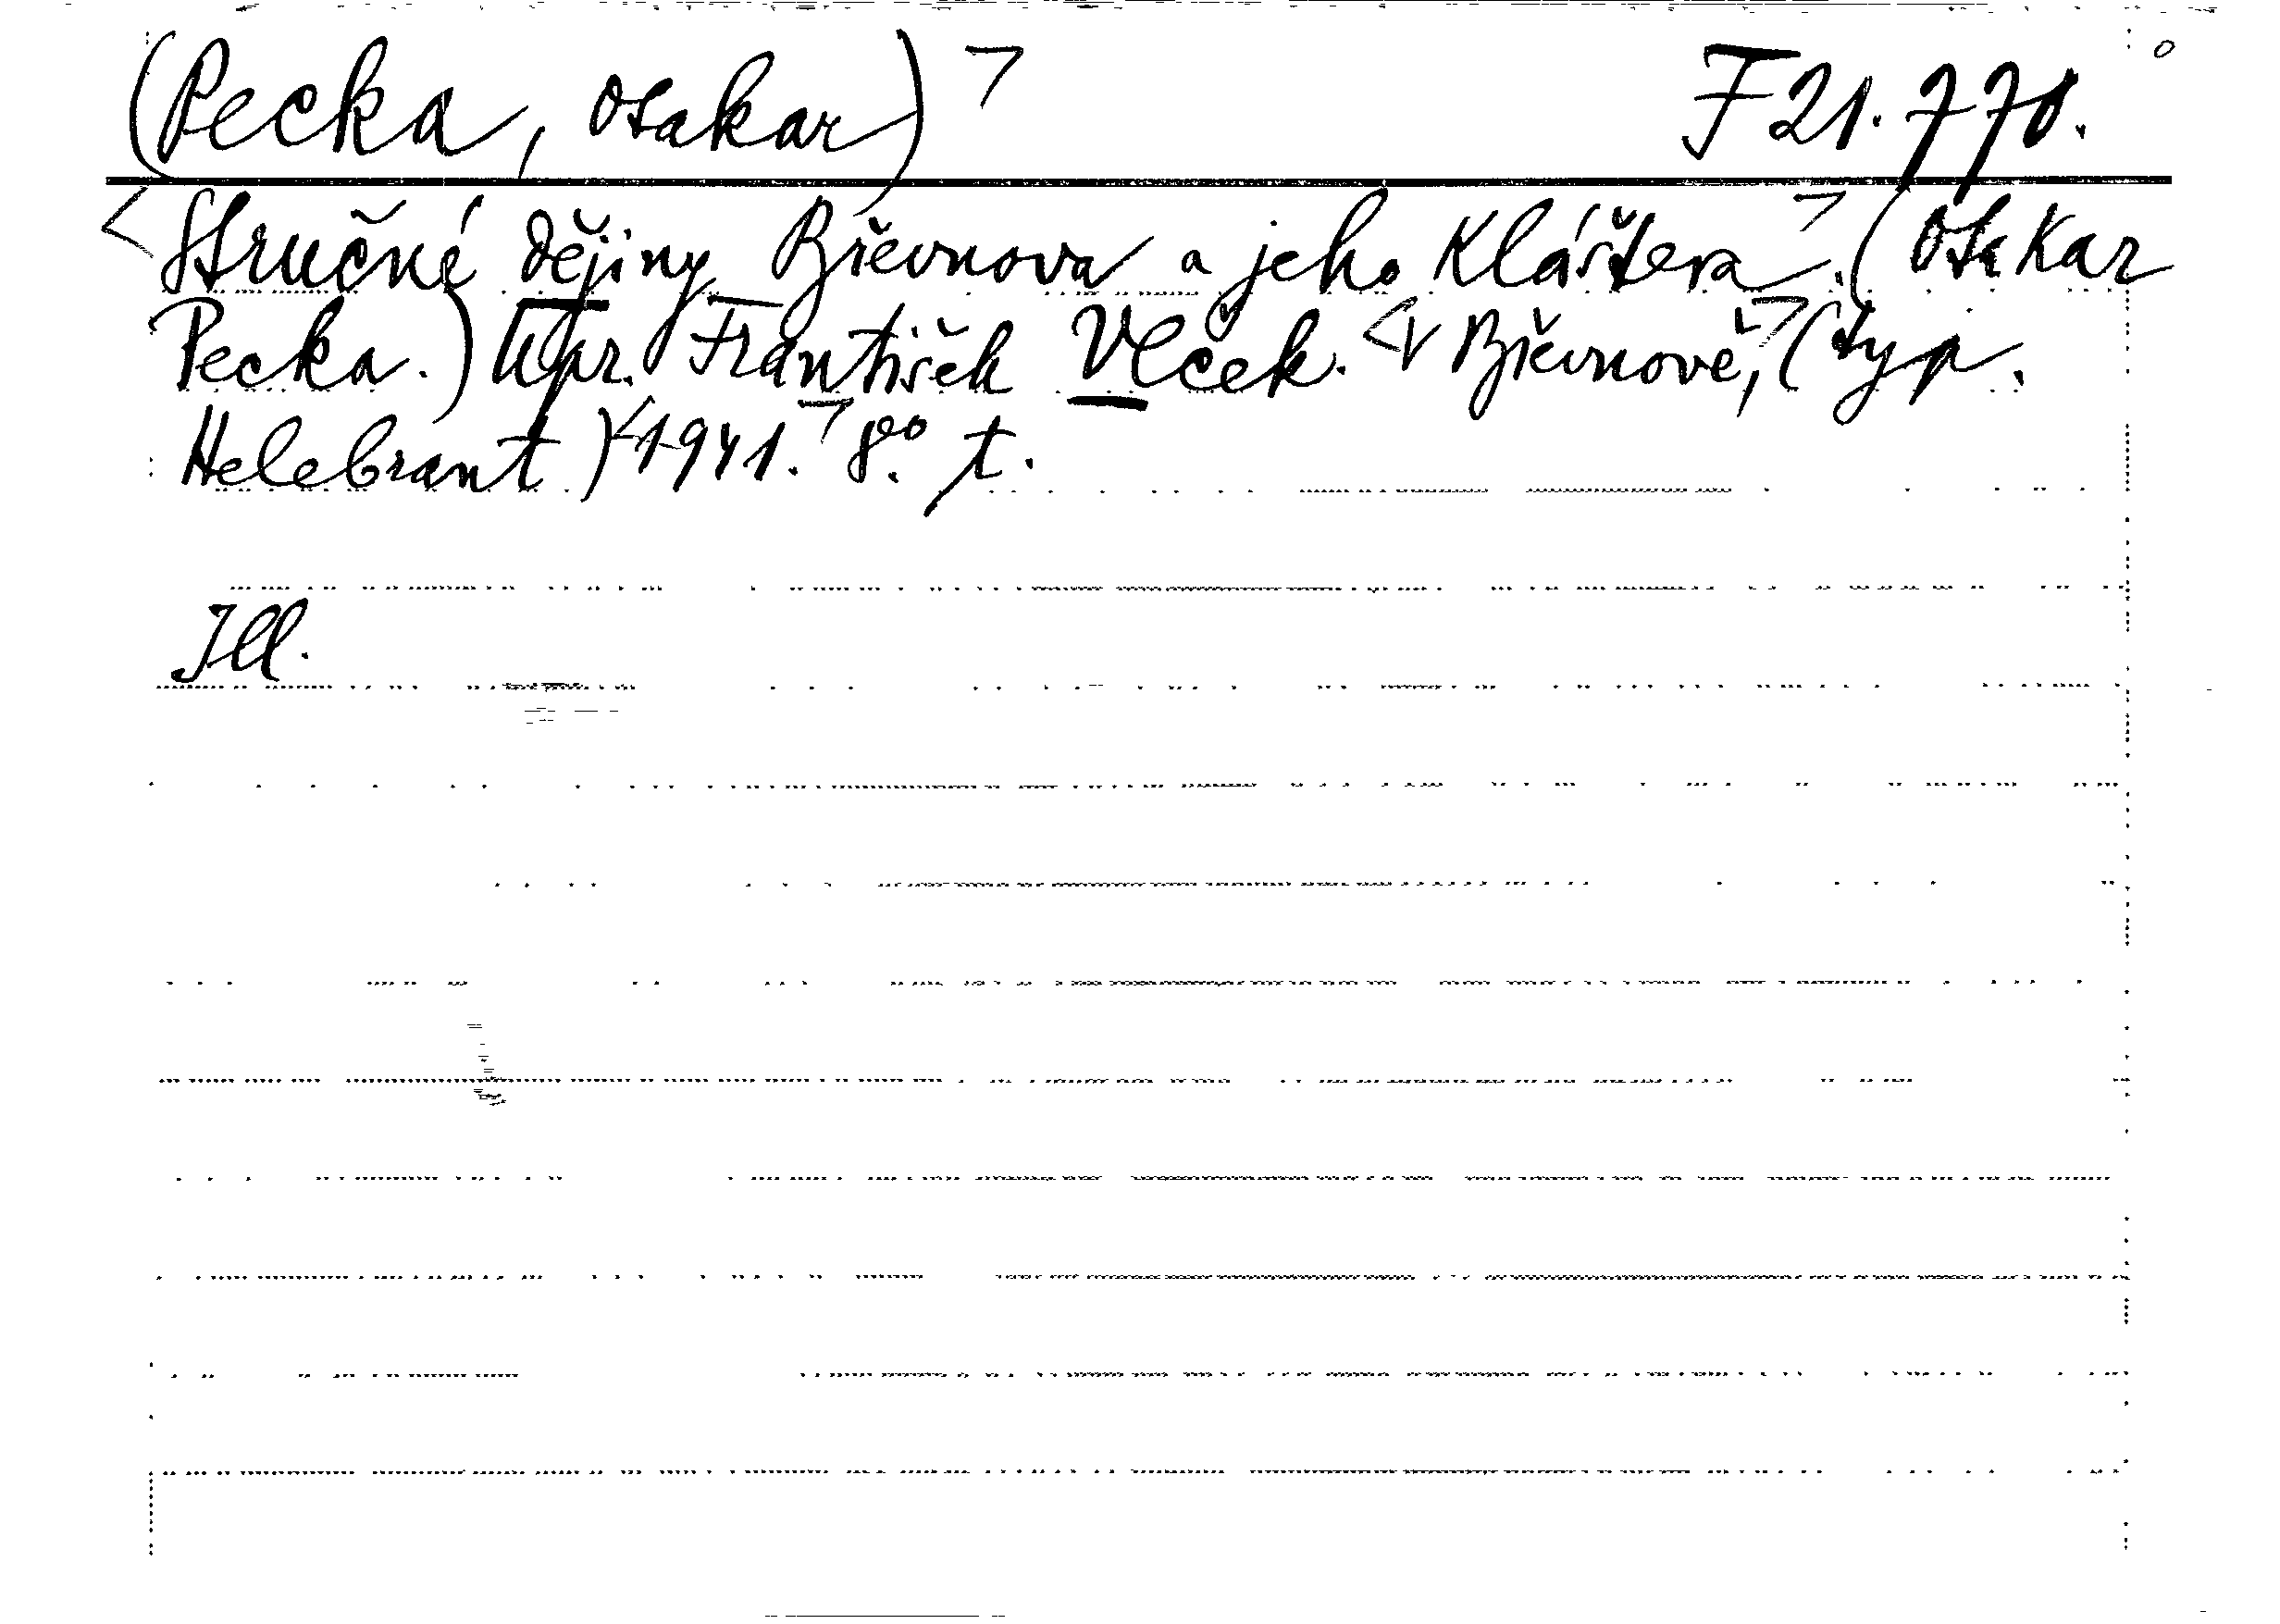 (Pecka, Otakar) ¬ F 21.770.
<Stručné dějiny Břevnova a jeho Kláštera¬. (Otakar
Pecka.) Upr. František Vlček. <V Břevnově,¬ (typ.
Helebrant.) <1941.¬ 8° t.
Ill.